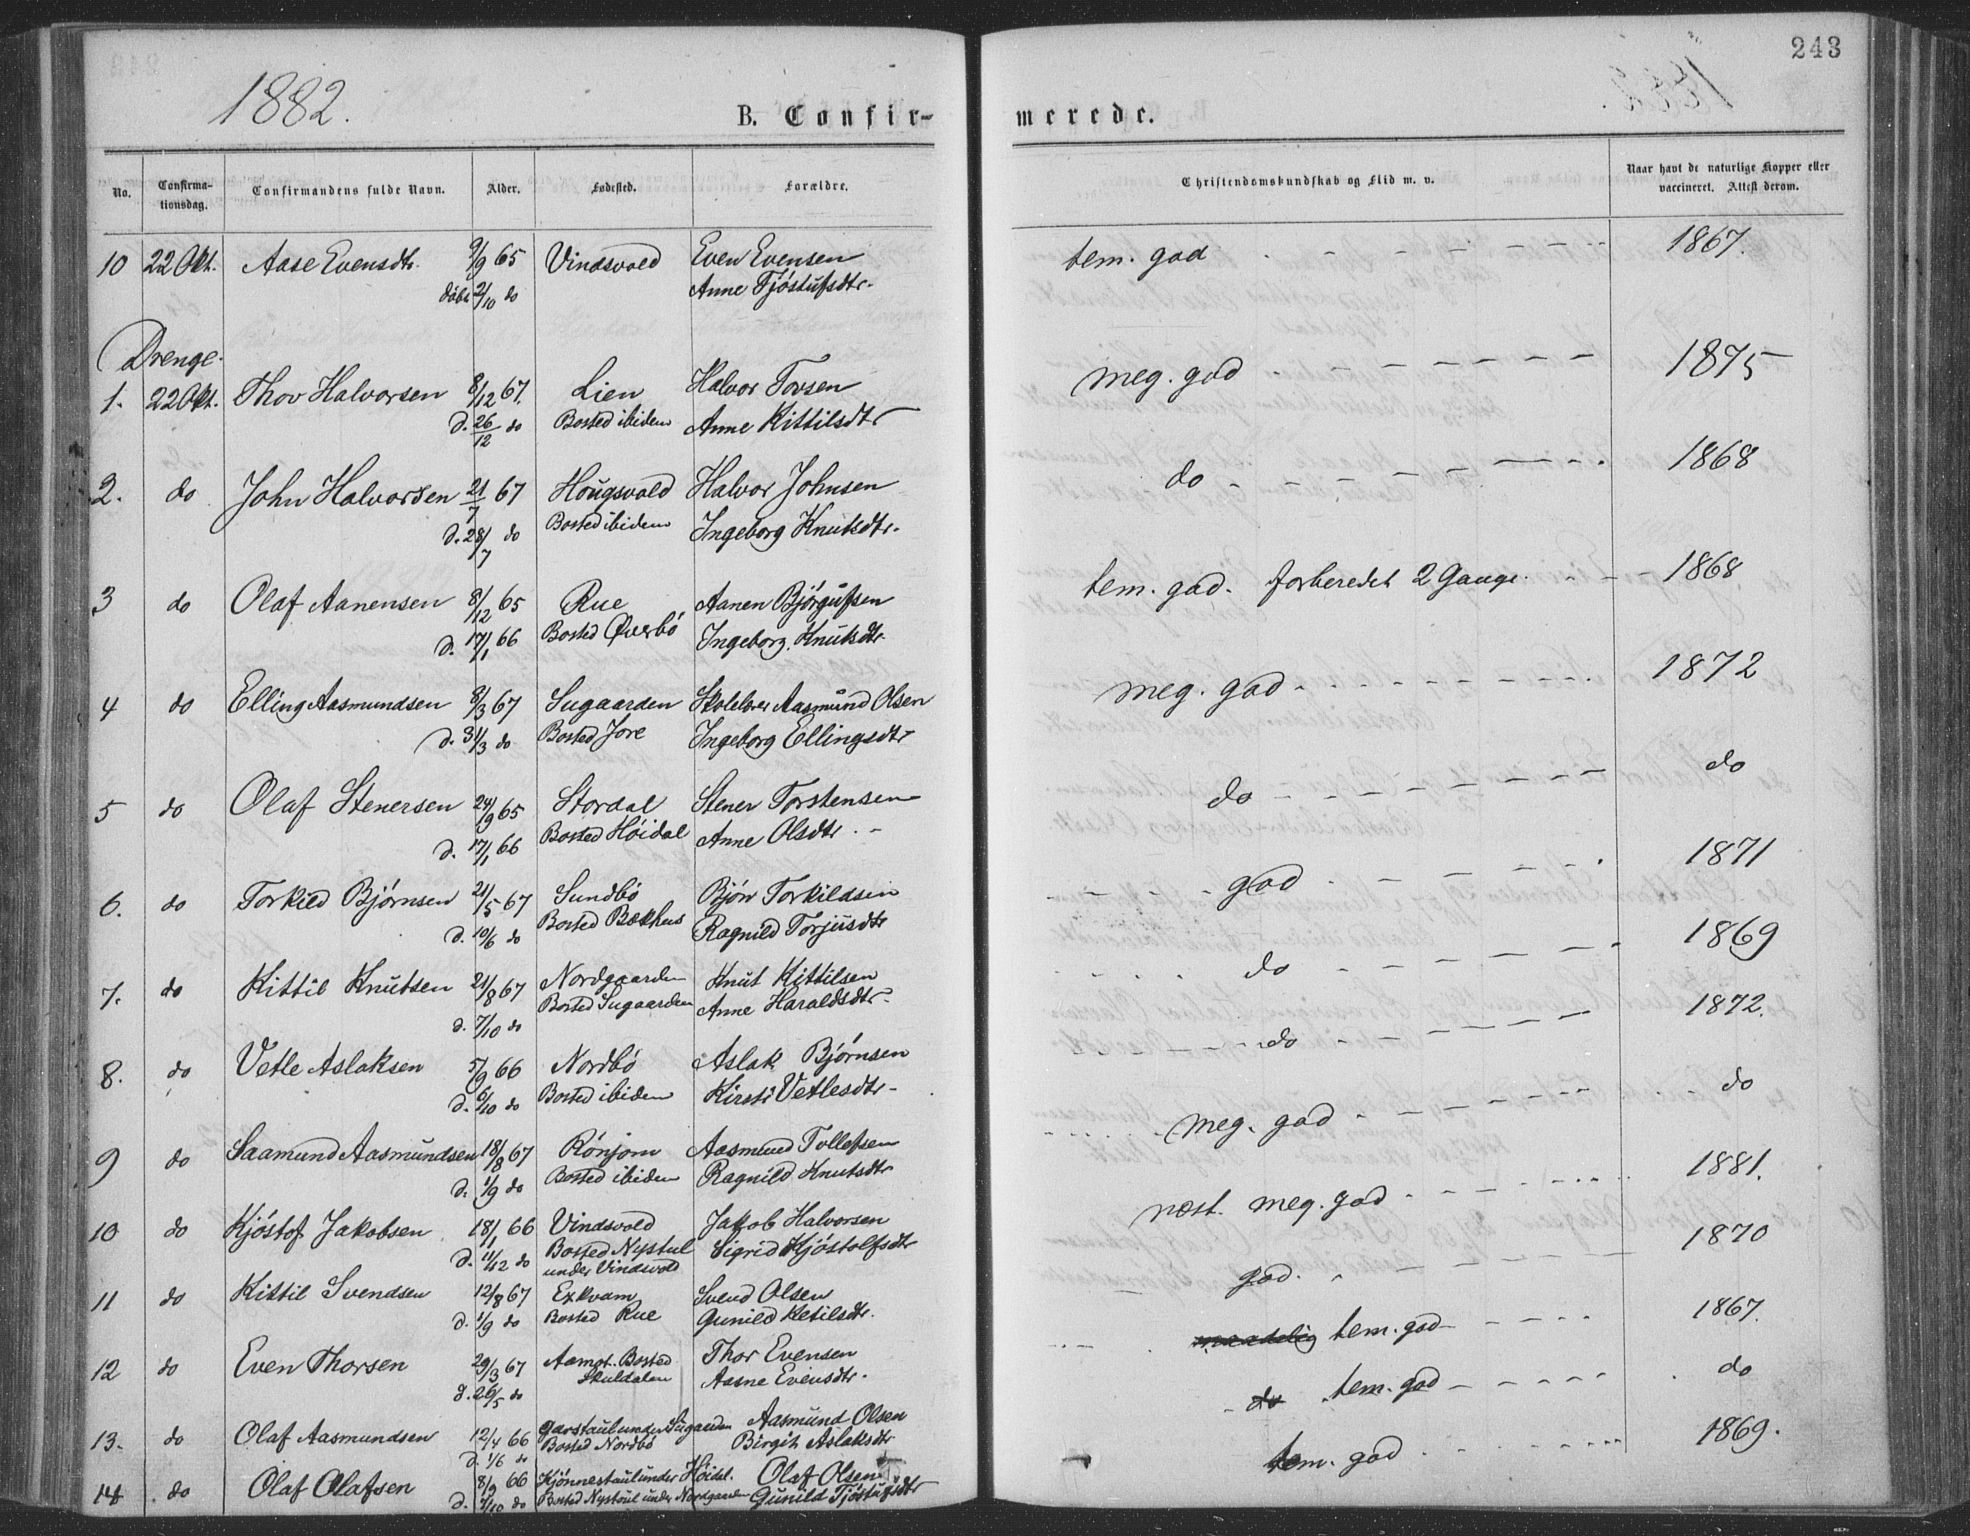 243
1882.
B. Confir-
merede.
No.
Confirma-
tionsdag.
Confirmandens fulde Navn.
Alder.
Fødested.
Forældre.
Christendomskundskab og Flid m. v.
Naar havt de naturlige Kopper eller
vaccineret. Attest derom.
10 22 Okt. Aase Evensdtr. 9/9 65 Vindsvold Even Evensen tem. god 1867.
døbt 2/10 do Anne Tjøstufsdtr.
Drenge.
1. 22 Okt. Thov Halvorsen 8/12 67. Lien Halvor Tovsen meg. god 1875
d. 26/12 do Bosted ibidem Anne Kittilsdtr
2. do John Halvorsen 21/7 67 Hougsvold Halvor Johnsen do 1868
d. 28/7 do Bosted ibidem Ingeborg Knutsdtr.
3 do Olaf Aanensen 8/12 65 Rue Aanen Bjørgufsen tem. god. forberedet 2 Gange. 1868
d. 17/1 66 Bosted Øverbø Ingeborg Knutsdtr.
4 do Elling Aasmundsen 8/3 67 Sugaarden Skolelærer Aasmund Olsen meg. god 1872
d. 31/3 do Bosted Jore Ingeborg Ellingsdtr
5 do Olaf Stenersen 24/9 65 Stordal Stener Torstensen do do
d. 17/1 66 Bosted Høidal Anne Olsdtr.
6. do Torkild Bjørnsen 21/5 67 Sundbø Bjørn Torkildsen god 1871
d. 10/6 do Bosted Bækhus Ragnild Torjusdtr
7. do Kittil Knutsen 21/8 67 Nordgaarden Knut Kittilsen do 1869
d. 7/10 do Bosted Sugaarden Anne Haraldsdtr.
8. do Vetle Aslaksen 5/9 66 Nordbø Aslak Bjørnsen do 1872.
d. 6/10 do Bosted ibidem Kirsti Vetlesdtr
9 do Saamund Aasmundsen 18/8 67 Rønjom Aasmund Tollefsen meg. god do
d. 1/9 do Bosted ibidem Ragnild Knutsdtr
10 do Kjøstof Jakobsen 18/1 66 Vindsvold Jakob Halvorsen næst. meg. god 1881.
d. 11/12 do Bosted Nystul Sigrid Kjøstolfsdtr
under Vindsvold
11 do Kittil Svendsen 12/8 67 Exkvam Svend Olsen god. 1870
d. 1/9 do Bosted Rue Gunild Ketilsdtr.
12 do Even Thorsen 29/3 67 Aamot. Bosted Thor Evensen tem. god 1867.
d. 26/5 do Skuldalen Aasne Evensdtr.
13. do Olaf Aasmundsen 12/4 66 Garstaul under Sugaarden Aasmund Olsen do tem. god do
d. 1/6 do Bosted Nordbø Birgit Aslaksdtr
14 do Olaf Olafsen 8/9 66 Kjønnestaul under Høidal. Olaf Olsen tem. god 1869.
d. 7/10 do Bosted Nystaul under Nordgaarden Gunild Tjøstufsdtr